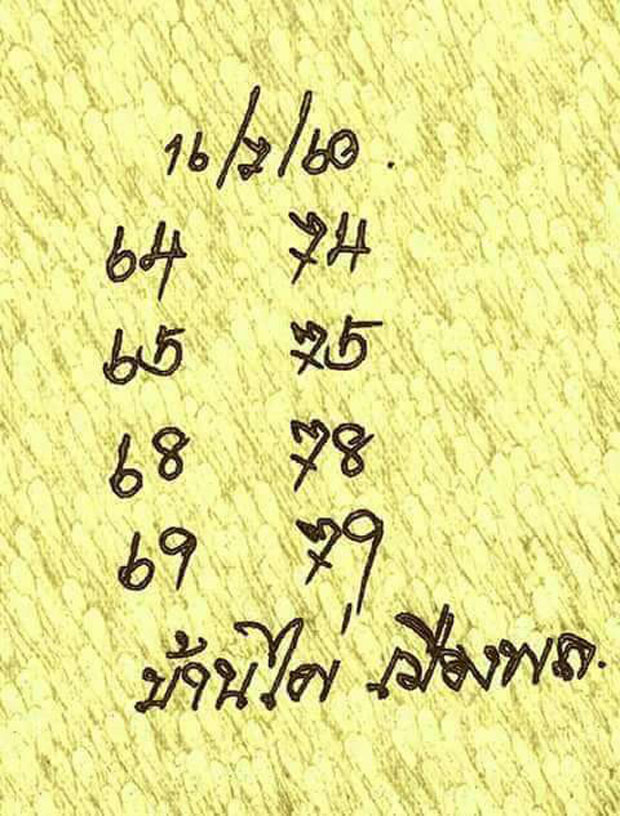 16/7/60.
64 74
65 75
68 78
69 79
บ้านไผ่ เมืองพล.